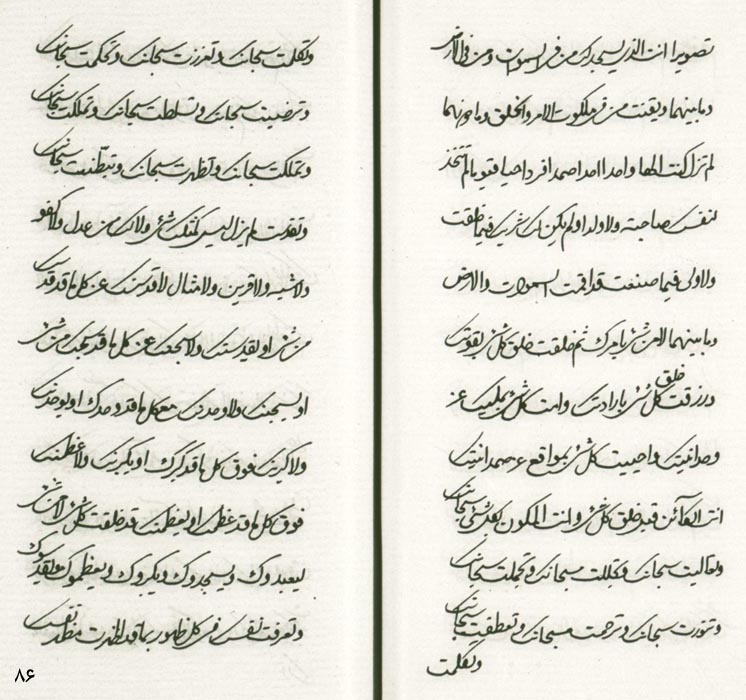 تصویرا انت الذی یسجد لک من فی السموات ومن فی الارض
وما بینهما ویقنت من فی ملکوت الامر والخلق وما دونهما
لم تزل کنت الها واحدا احدا صمدا فردا حیا قیوما لم تتخذ
لنفسک صاحبة ولا ولدا ولم یکن لک شریک فیما خلقت
ولا ولی فیما صنعت قد اقمت السموات والارض
وما بینهما لا من شئ بامرک ثم خلقت خلق کل شئ بقوتک
ورزقت خلق کل شئ بارادتک وامت کل شئ بملیک عز
وحدانیتک واحییت کل شئ بمواقع عز صمدانیتک
انت الکائن قبل خلق کل شئ وانت المکون لکل شئ سبحانک
وتعالیت سبحانک وتجللت سبحانک وتجملت سبحانک
وتنورت سبحانک وترحمت سبحانک وتعطفت سبحانک
وتکلمت
وتکلمت سبحانک وتعززت سبحانک وتحکمت سبحانک
وترضیت سبحانک وتسلطت سبحانک وتملکت سبحانک
وتملکت سبحانک وتظهرت سبحانک وتبطنت سبحانک
وتقدست لم یزل لیس کمثلک شئ ولا لک من عدل ولا کفو
ولا شبه ولا قرین ولا مثال لاقدسنک عن کل ما قد قدسک
من شئ او یقدسنک ولاسبحنک عن کل ما قد سبحک من شئ
او یسبحنک ولاوحدنک مع کل ما قد وحدک او یوحدنک
ولاکبرنک فوق کل ما قد کبرک او یکبرنک ولاعظمنک
فوق کل ما قد عظمک او یعظمنک قد خلقت کل شئ لا من شئ
لیعبدوک ویسجدوک ویکبروک ویعظموک ویقدسوک
وتعرفت نفسک فی کل ظهور بما قد اظهرت مظهر نفسک
۸۶